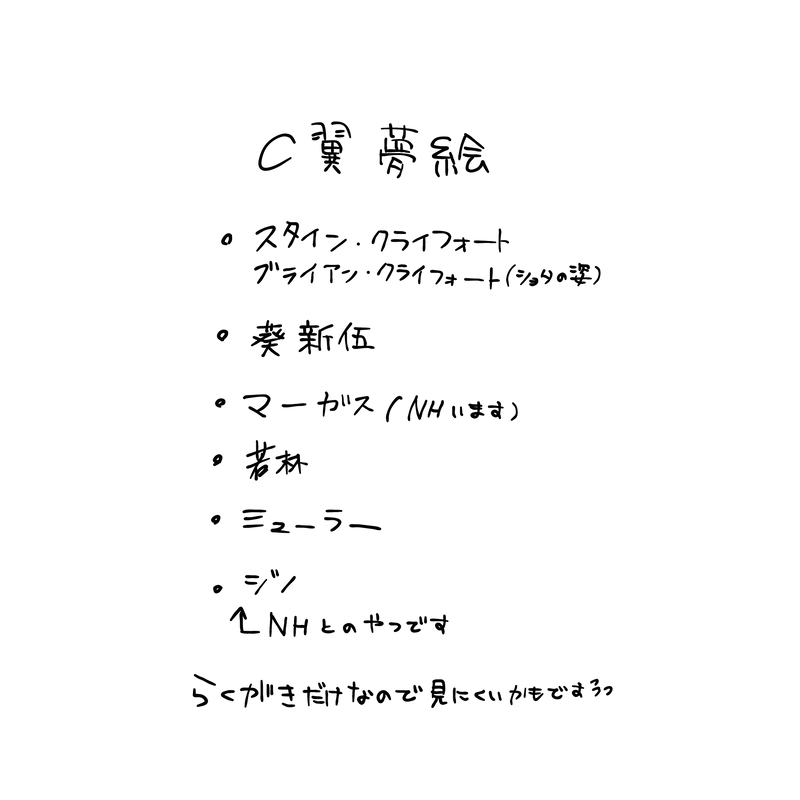 C翼 夢絵
• スタイン・クライフォート
ブライアン・クライフォート(ショタの姿)
• 葵新伍
• マーガス(NHいます)
• 若林
• ミューラー
• ジノ
↑NHとのやつです
らくがきだけなので見にくいかもです